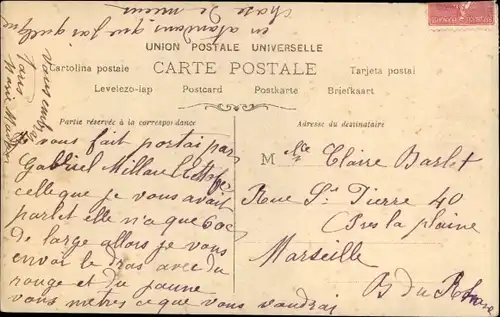 en atandans que j'ai quelque
chose de mieux
vous embra
Marie
UNION POSTALE UNIVERSELLE
Cartolina postale
CARTE POSTALE
Tarjeta postal
Levelezo-lap
Postcard
Postkarte
Briefkaart
Partie réservée à la correspondance
Je vous fait postai par
Gabriel
celle que je vous avait
parlet elle n'a que 60c
de large allors je vous
envoi le dras avec du
rouge et du jaune
vous mètres ce que vous voudrai
Adresse du destinataire
Mlle Claire Barlet
Rue St Pierre 40
Pres la plaine
Marseille
B du Rhone